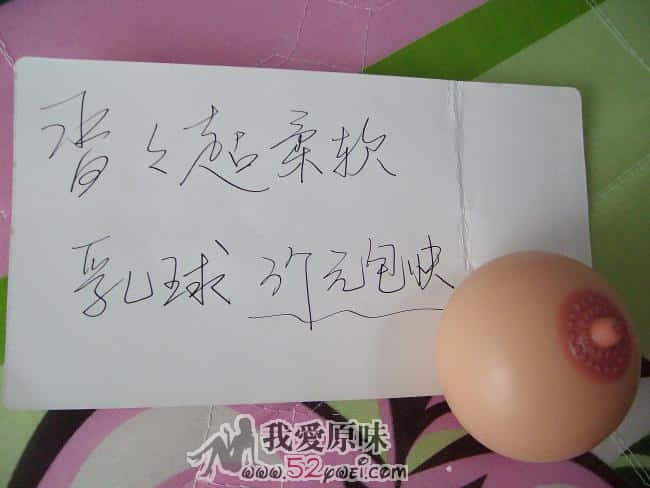 超柔软
乳球 元包快
我愛原味
www.52ywei.com